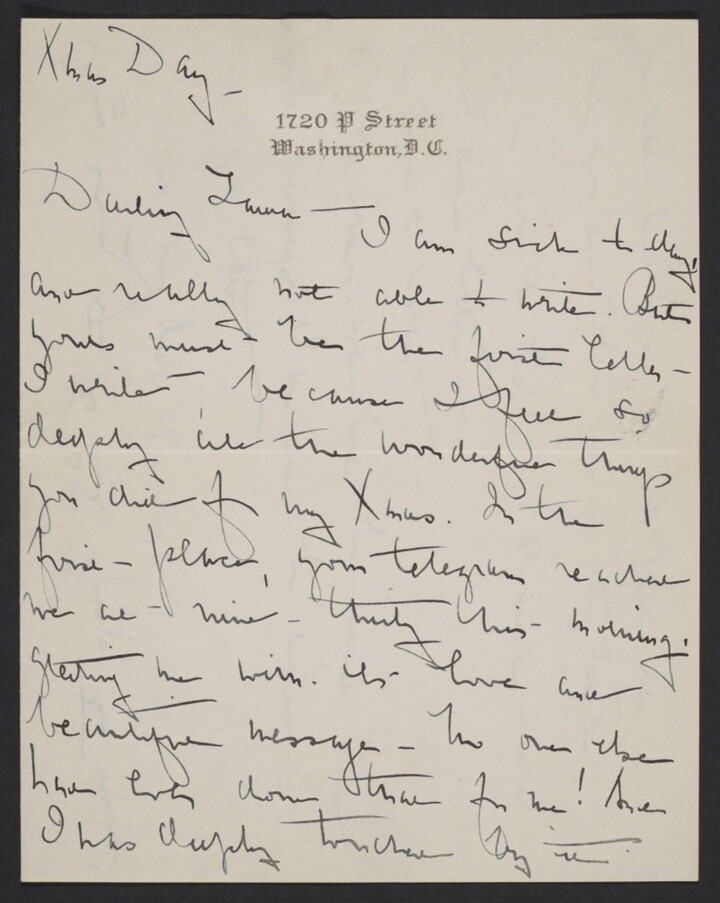 Xmas Day –
1720 P Street
Washington, D.C.
Darling Laura — I am sick to day,
and really not able to write. But
yours must be the first letter –
I write because I feel so
deeply all the wonderful things
you did for my Xmas. In the
first – place, your telegram reached
me at – nine – thirty this morning.
greeting me with its love and
beautiful message – no one else
has ever done that for me! And
I was deeply touched by it.